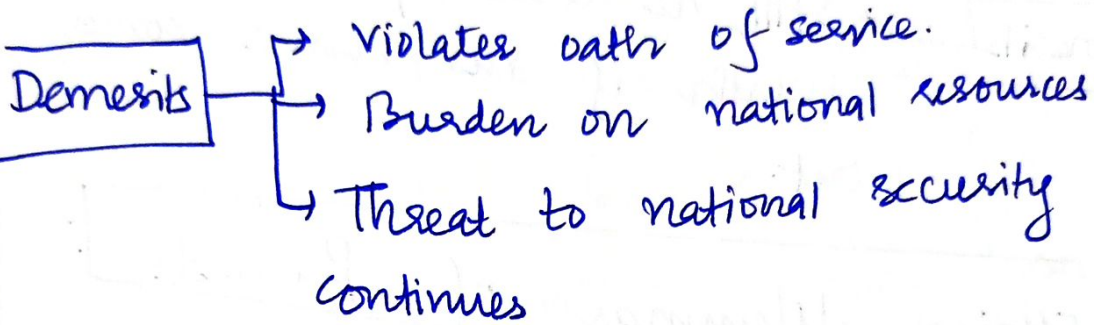 Violates oath of service.
Demerits
Burden on national resources
Threat to national security
continues